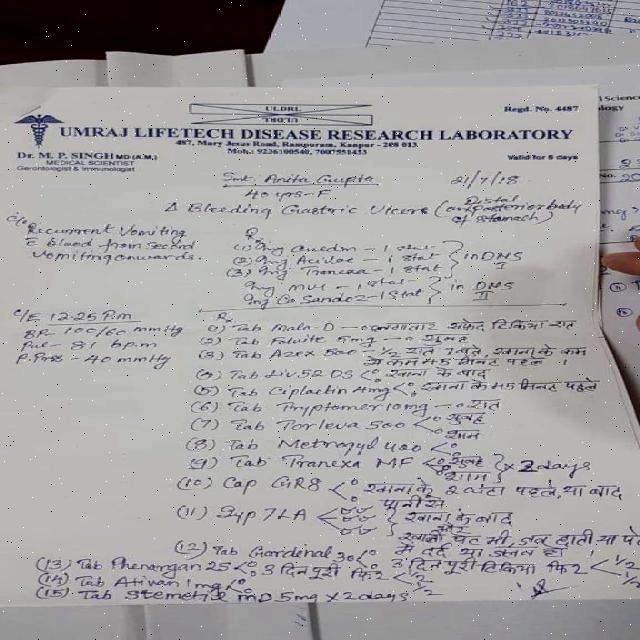 ULDRL
Regd. No. 4487
UMRAJ LIFETECH DISEASE RESEARCH LABORATORY
487, Mary Jesus Road, Rampuram, Kanpur - 208 013.
Mob.: 9236100540, 7007551433
Valid for 5 days
Dr. M. P. SINGH MD (A.M.)
MEDICAL SCIENTIST
Gerontologist & Immunologist
Smt. Anita Gupta
40 yrs-F
21/7/18
Δ Bleeding Gastric Ulcers (Distal
body
of stomach)
c/o
Recurrent Vomiting
c blood from second
vomiting onwards.
R
(1) Inj - 1 stat
(2) Inj - 1 stat
(3) Inj Tranexa - 1 Stat
in DNS
I
Inj MVI - 1 stat
Inj Ca Sandoz - 1 Stat
in DNS
II
O/E 12-25 P.m
BP - 100/60 mmHg
Pul - 81 b.p.m
P. Pres - 40 mmHg
R
(1) Tab Mala-D - लगातार सफेद टिकिया रात
(2) Tab Folvite 5mg - सुबह
(3) Tab 500 - 1/2 रात 1 बजे, खाना के कम
से कम 45 मिनट पहले ।
(4) Tab Liv. 52 DS < खाना के बाद
(5) Tab Ciplactin 4mg < खाना के 45 मिनट पहले
(6) Tab Tryptomer 10mg - रात
(7) Tab Torleva 500 < सुबह
शाम
(8) Tab Metrogyl 400 <
(9) Tab Tranexa MF < सुबह
शाम × 2 days
(10) Cap GR8 < खाना के 2 घंटा पहले, या बाद
पानी से
(11) Syp 7LA < खाना के बाद
और
खाली पेट भी, जब
में दर्द या जलन हो ।
(12) Tab Gardenal 30 < 3 दिन पूरी टिकिया फिर < 1/2
1/2
(13) Tab Phenergan 25 < 3 दिन पूरी फिर < 1/2
1/2
(14) Tab Ativan 1mg <
(15) Tab Stemetil MD 5mg × 2 days